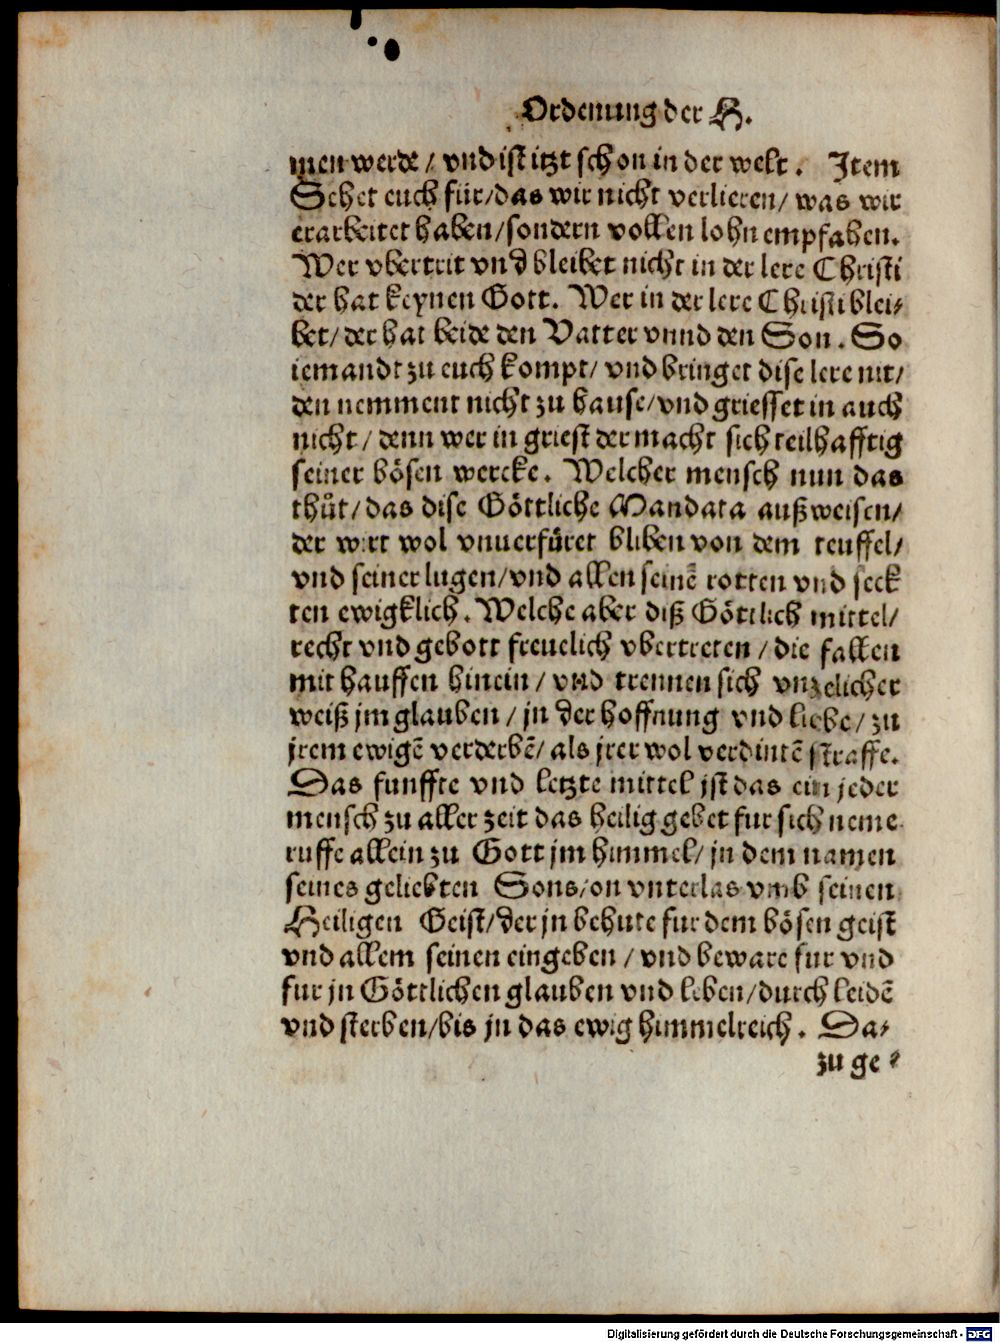 Ordenung der H.
men werde / vnd ist itzt schon in der welt. Item
Sehet euch für/das wir nicht verlieren/ was wir
erarbeitet haben/sondern vollen lohn empfahen.
Wer vbertrit vnd bleibet nicht in der lere Christi
der hat keynen Gott. Wer in der lere Christi blei⸗
bet/ der hat beide den Vatter vnnd den Son. So
iemandt zu euch kompt/ vnd bringet dise lere nit/
den nemment nicht zu hause/vnd griesset in auch
nicht / denn wer in griest der macht sich teilhafftig
seiner bösen wercke. Welcher mensch nun das
thůt/das dise Göttliche Mandata außweisen/
der wirt wol vnuerfüret bliben von dem teuffel/
vnd seiner lugen/vnd allen seinē rotten vnd seck
ten ewigklich. Welche aber diß Göttlich mittel/
recht vnd gebott freuelich vbertreten / die fallen
mit hauffen hinein / vnd trennen sich vnzelicher
weiß jm glauben / jn der hoffnung vnd liebe/ zu
jrem ewigē verderbē/ als jrer wol verdintē straffe.
Das funffte vnd letzte mittel jst das ein jeder
mensch zu aller zeit das heilig gebet fur sich neme
ruffe allein zu Gott jm himmel/ jn dem namen
seines geliebten Sons/on vnterlas vmb seinen
Heiligen Geist/der jn behute fur dem bösen geist
vnd allem seinen eingeben / vnd beware fur vnd
fur jn Göttlichen glauben vnd leben/durch leidē
vnd sterben/bis jn das ewig himmelreich. Da⸗
zu ge⸗
Digitalisierung gefördert durch die Deutsche Forschungsgemeinschaft - DFG